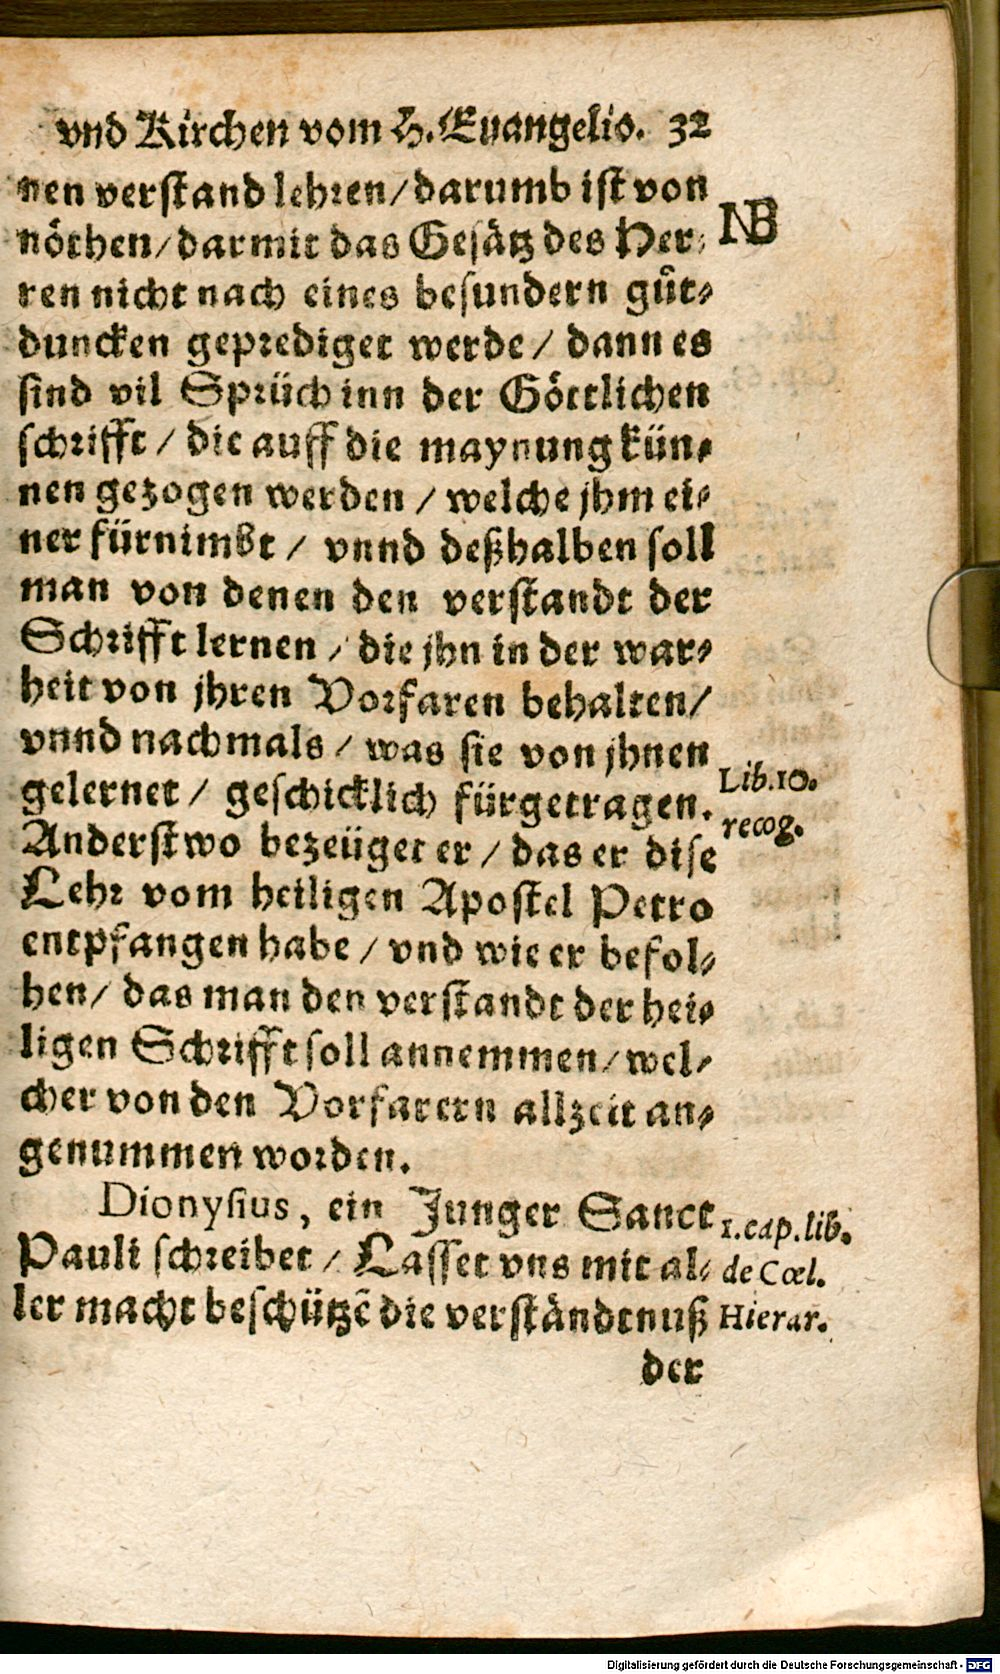 vnd Kirchen vom H. Euangelio. 32
nen verstand lehren/darumb ist von
nöthen/darmit das Gesätz des Her-
NB
ren nicht nach eines besundern gůt-
duncken geprediget werde / dann es
sind vil Sprüch inn der Göttlichen
schrifft / die auff die maynung kün-
nen gezogen werden / welche jhm ei-
ner fürnimbt / vnnd deßhalben soll
man von denen den verstandt der
Schrifft lernen / die jhn in der war-
heit von jhren Vorfaren behalten/
vnnd nachmals / was sie von jhnen
gelernet / geschicklich fürgetragen.
Lib.10.
recog.
Anderstwo bezeüget er / das er dise
Lehr vom heiligen Apostel Petro
entpfangen habe / vnd wie er befol-
hen/ das man den verstandt der hei-
ligen Schrifft soll annemmen/wel-
cher von den Vorfarern allzeit an-
genummen worden.
Dionysius, ein Junger Sanct
Pauli schreibet / Lasset vns mit al-
ler macht beschützẽ die verständtnuß
1.cap.lib.
de Cœl.
Hierar.
der
Digitalisierung gefördert durch die Deutsche Forschungsgemeinschaft - DFG